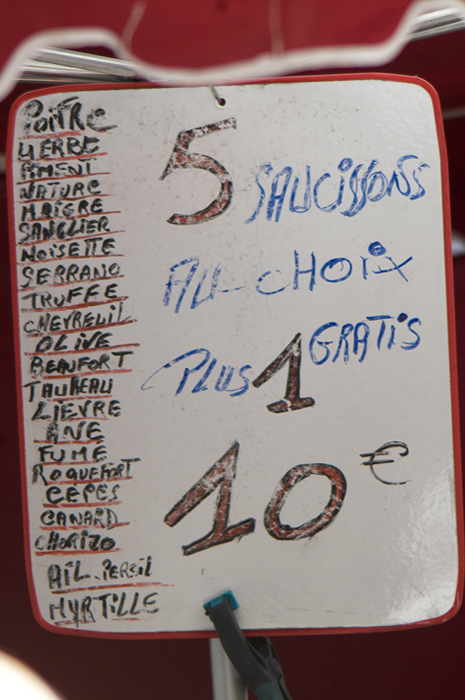 POIVRE
HERBE
PIMENT
NATURE
MAIGRE
SANGLIER
NOISETTE
SERRANO
TRUFFE
CHEVREUIL
OLIVE
BEAUFORT
TAUREAU
LIEVRE
ANE
FUME
ROQUEFORT
CEPES
CANARD
CHORIZO
AIL-PERSIL
MYRTILLE
5 SAUCISSONS
AU CHOIX
PLUS 1 GRATIS
10 €